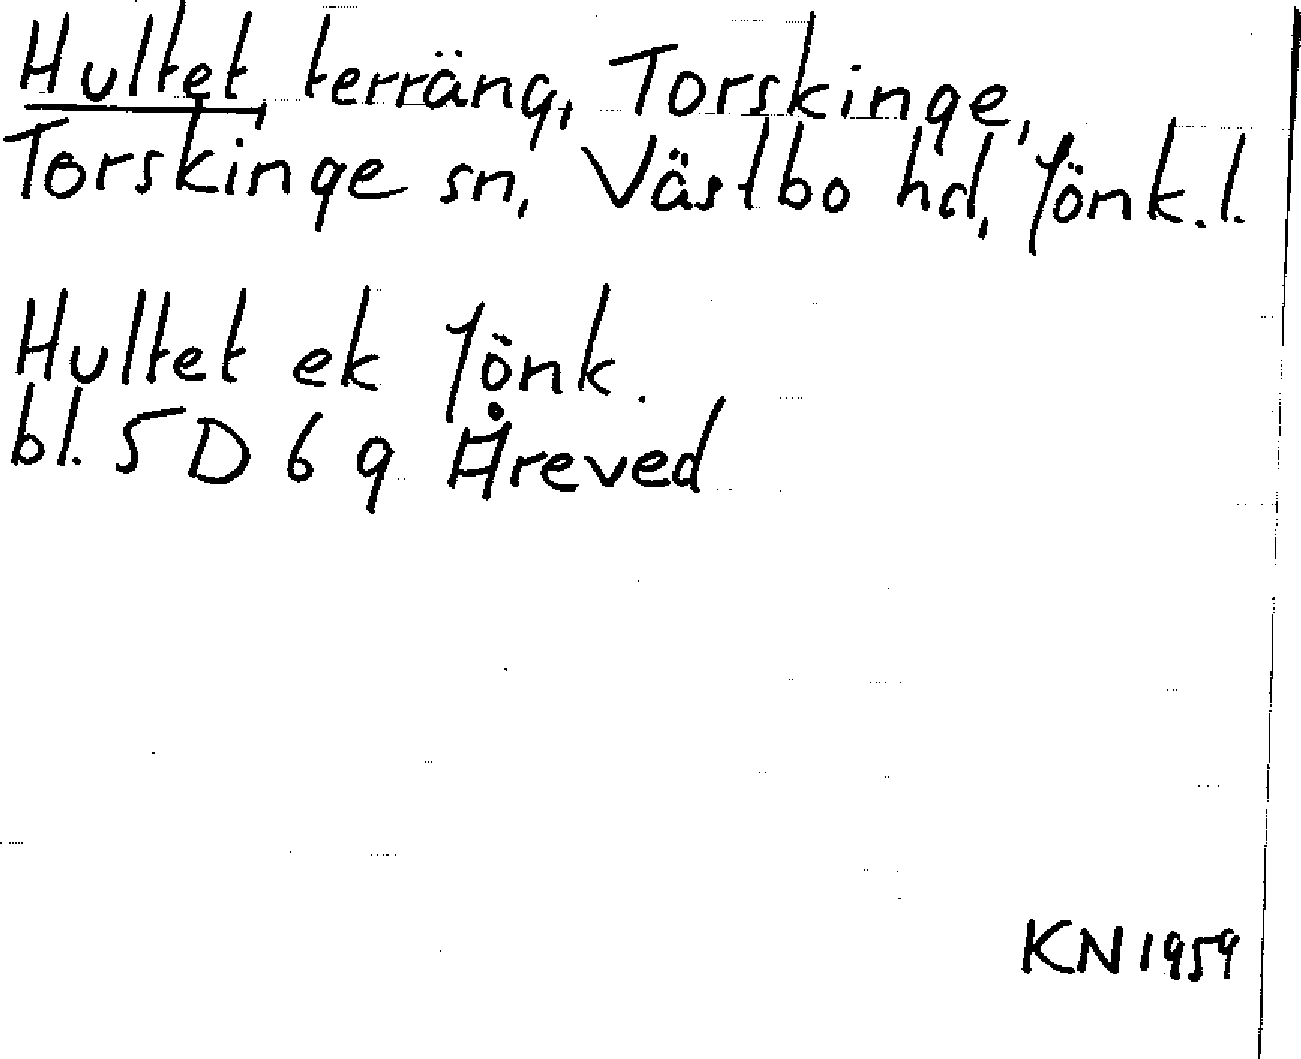 Hultet, terräng, Torskinge,
Torskinge sn, Västbo hd, Jönk.l.
Hultet ek Jönk.
bl. 5D 6g Åreved
KN 1959